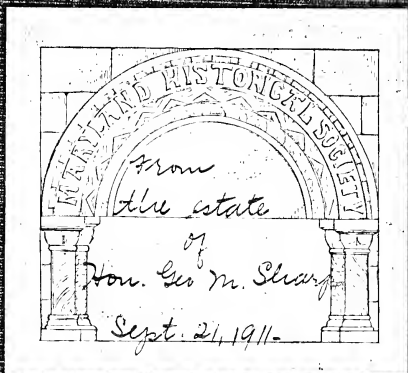 MARYLAND HISTORICAL SOCIETY
From
the estate
of
Hon. Geo M. Sharp
Sept. 21, 1911-